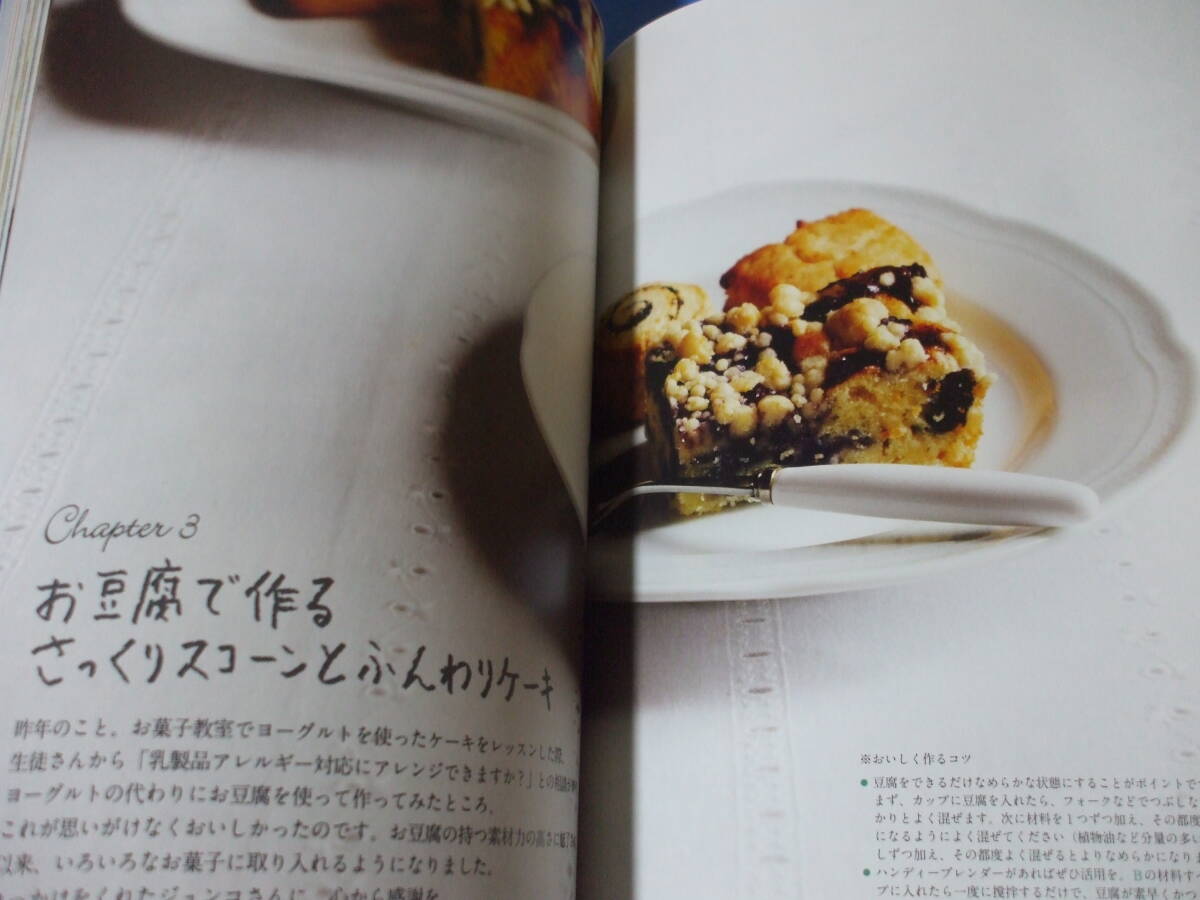 Chapter 3
お豆腐で作る
さっくりスコーンとふんわりケーキ
昨年のこと。お菓子教室でヨーグルトを使ったケーキをレッスンした際、
生徒さんから「乳製品アレルギー対応にアレンジできますか?」との
ヨーグルトの代わりにお豆腐を使って作ってみたところ、
これが思いがけなくおいしかったのです。お豆腐の持つ素材力の高さに
以来、いろいろなお菓子に取り入れるようになりました。
きっかけをくれたジュンコさんに、心から感謝を。
※おいしく作るコツ
● 豆腐をできるだけなめらかな状態にすることがポイントで
まず、カップに豆腐を入れたら、フォークなどでつぶしな
かりとよく混ぜます。次に材料を1つずつ加え、その都度
になるようによく混ぜてください(植物油など分量の多い
しずつ加え、その都度よく混ぜるとよりなめらかになりま
● ハンディーブレンダーがあればぜひ活用を。Bの材料すべ
プに入れたら一度に撹拌するだけで、豆腐が素早くかつ